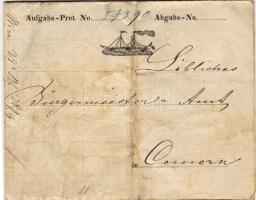 Aufgabs-Prot. No. 14390 Abgabs-No.
Löbliches
Bürgermeister-Amt
in Comorn